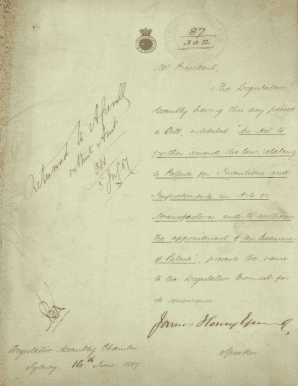 87
302
Mr President,
The Legislative
Assembly having this day passed
a Bill, intituled "An Act to
together amend the law relating
to Patents for Inventions and
Improvements in Arts or
Manufactures and to authorise
the appointment of an Examiner
of Patents", presents the same
to the Legislative Council for
its concurrence.
Returned to Assembly
without Amdt
Legislative Assembly Chamber
Sydney 16th June 1887
Speaker.
James Henry